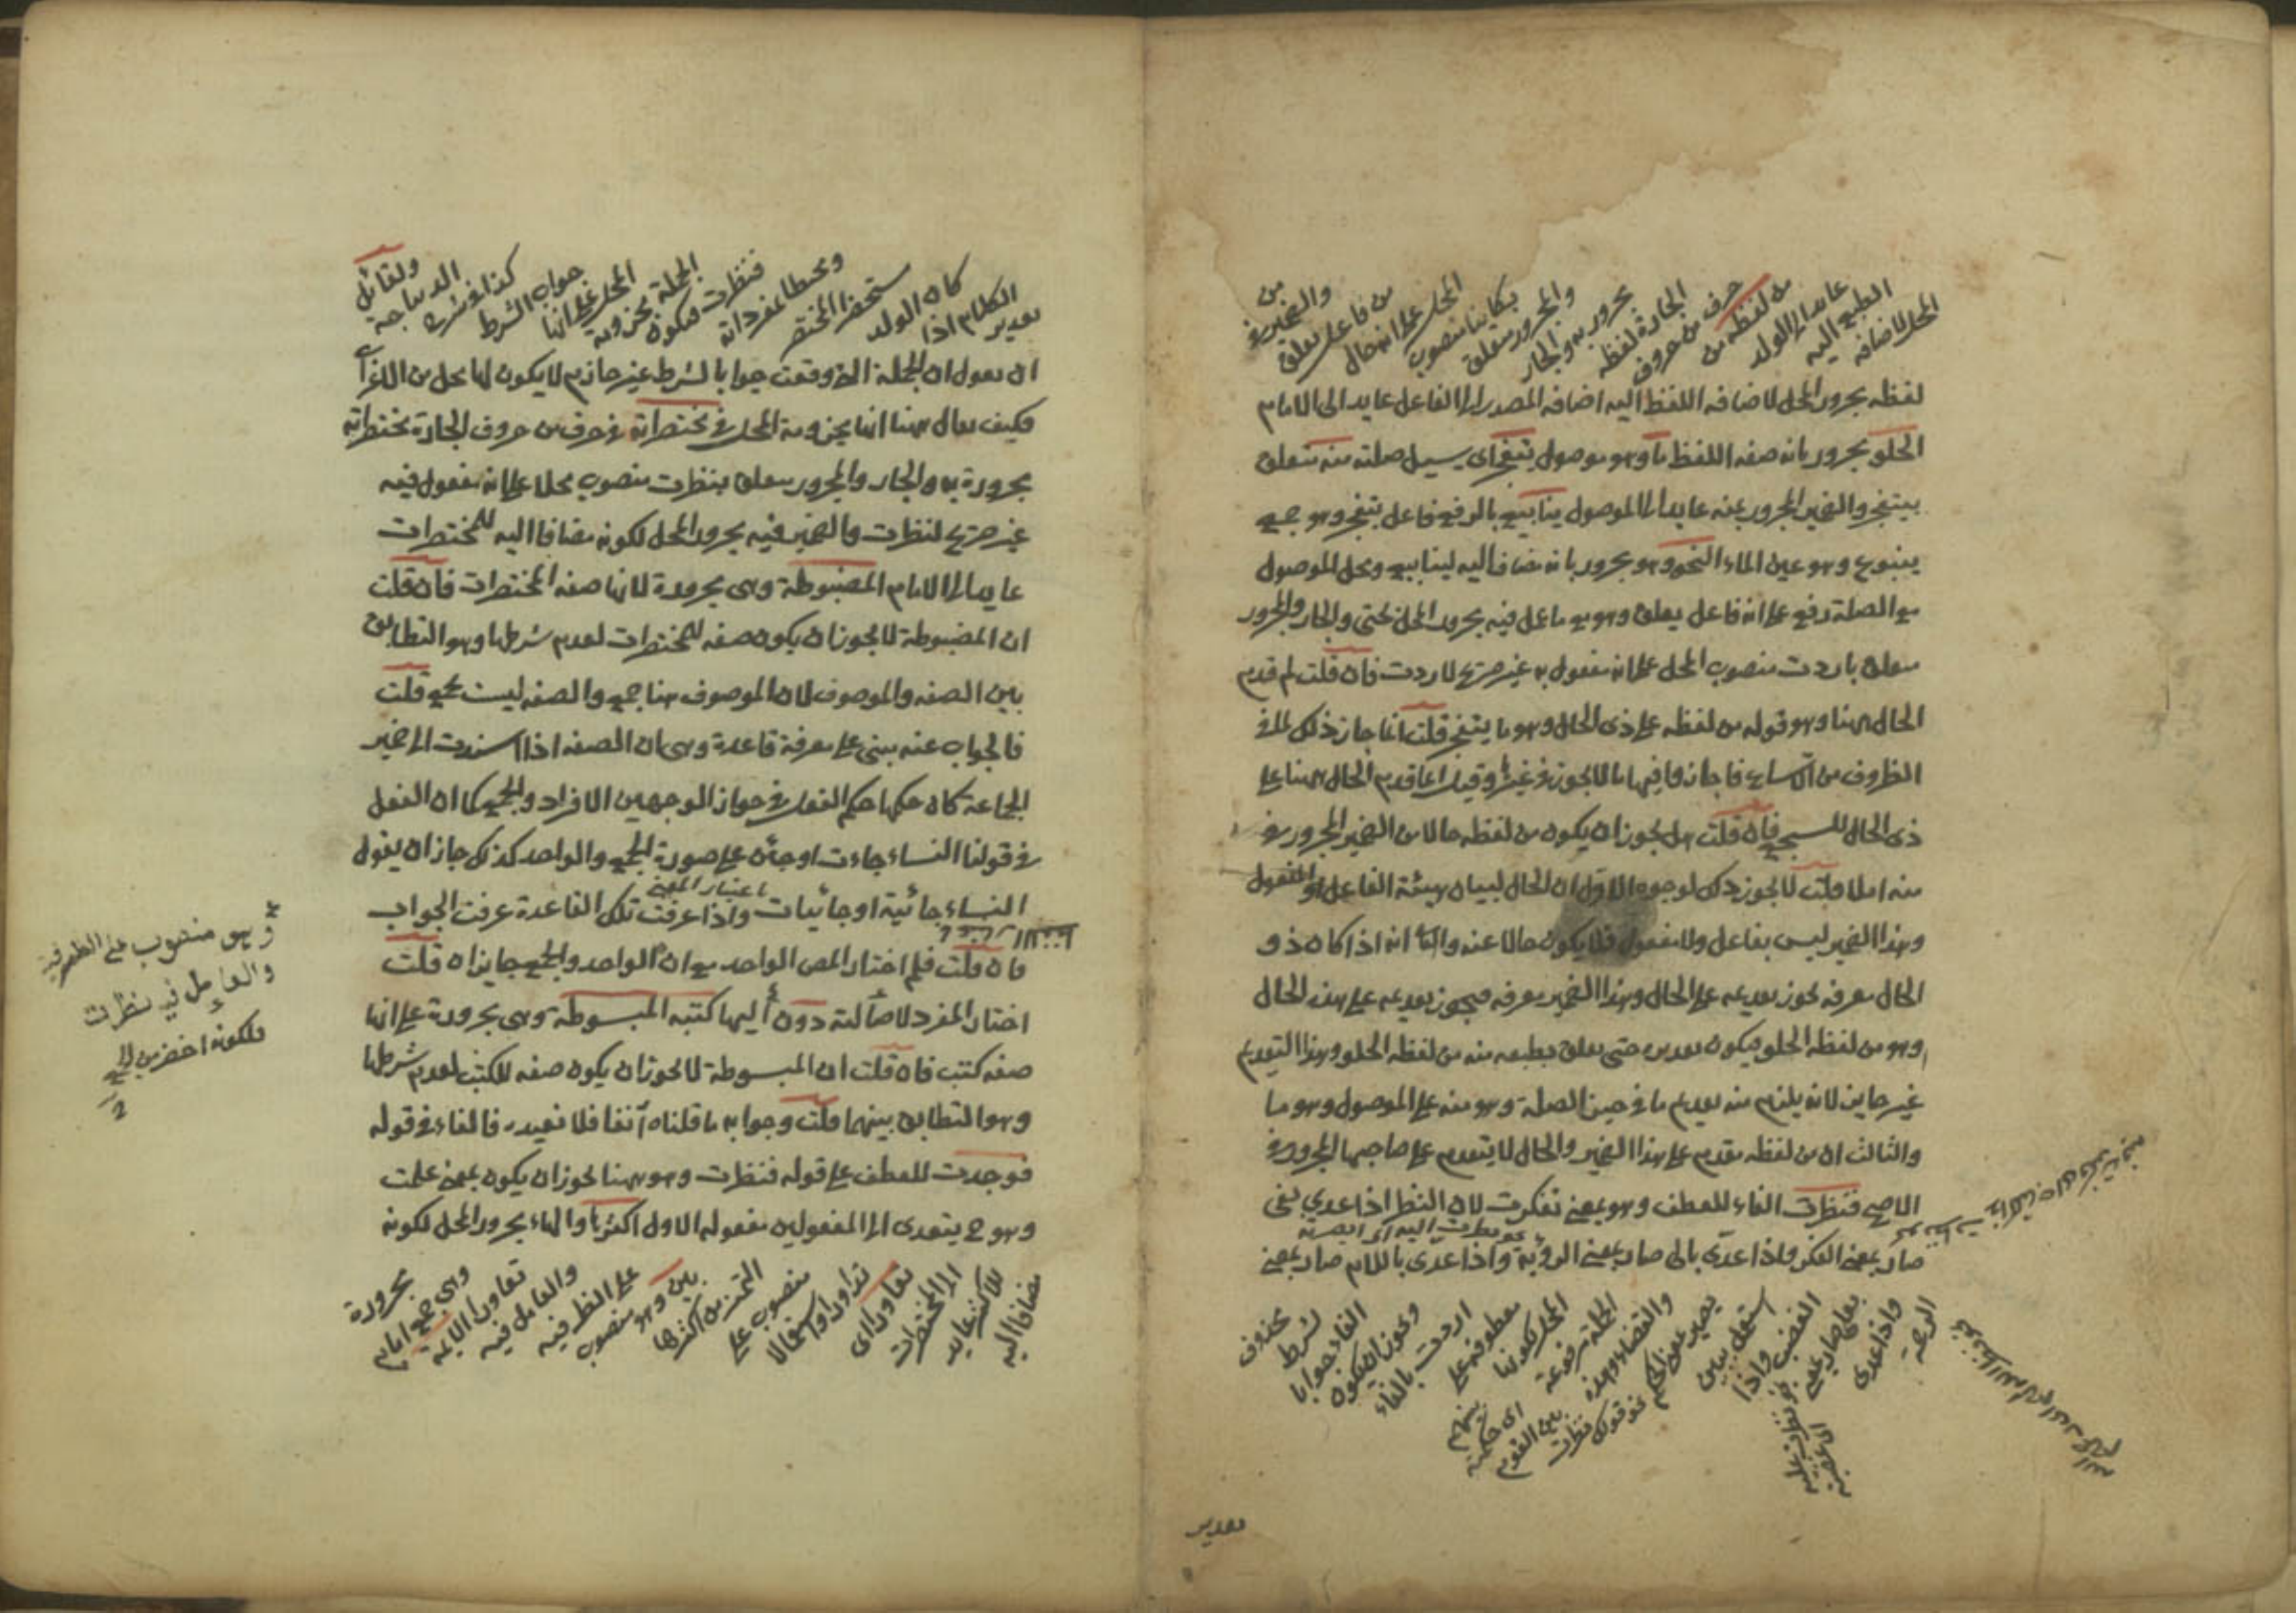 المحل لاضافه
الطبع اليه
عايد الى الولد
من لفظه من
حرف من حروف
الجارة لفظه
مجرور به والجار
والمجرور متعلق
بكاينا منصوب
المحل على انه حال
من فاعل يعلق
والضمير في
من
لفظه مجرور المحل لاضافه اللفظ اليه اضافه المصدر الى الفاعل عايد الى الامام
الحلو مجرور بانه صفه اللفظ ما وهو موصول يتفجر اى يسيل صلته منه متعلق
بيتفجر والضمير المجرور عنه عايد الى الموصول ينابيع بالرفع فاعل يتفجر وهو جمع
ينبوع وهو عين الماء النحو وهو مجرور بانه مضاف اليه لينابيع ومحل الموصول
مع الصلة رفع على انه فاعل يعلق وهو مع ما عمل فيه مجرور المحل بحتى والجار والمجرور
متعلق باردت منصوب المحل على انه مفعول به غير صريح لاردت فان قلت لم قدم
الحال ههنا وهو قوله من لفظه على ذى الحال وهو ما يتفجر قلت انما جاز ذلك لما فى
الظروف من الاتساع فاجازوا فيها ما لا يجوز فى غيرها وقيل انما قدم الحال ههنا على
ذى الحال للسجع فان قلت هل يجوز ان يكون من لفظه حالا من الضمير المجرور فى
منه ام لا قلت لا يجوز ذلك لوجوه الاول ان الحال لبيان هيئة الفاعل او المفعول
وهذا الضمير ليس بفاعل ولا مفعول فلا يكون حالا عنه والثانى انه اذا كان ذو
الحال معرفه يجوز تقديمه على الحال وهذا الضمير معرفه فيجوز تقديمه على هذه الحال
وهو من لفظه الحلو فيكون تقديره حتى يعلق بطبعه منه من لفظه الحلو وهذا التقديم
غير جايز لانه يلزم منه تقديم ما فى حيز الصلة وهو منه على الموصول وهو ما
والثالث ان من لفظه مقدم على هذا الضمير والحال لا يتقدم على صاحبها المجرور فى
الاصح فنظرت الفاء للعطف وهو بمعنى تفكرت لان النظر اذا عدي بفى
صار بمعنى الفكر واذا عدّى بالى صار بمعنى الرؤية واذا عدى باللام صار بمعنى
الرحمة
واذا عدى
بعلى صار بمعنى
الغضب واذا
استعمل ببين
يصير بمعنى الحكم
والقضاء وهذه
الجملة مرفوعة
المحل لكونها
معطوفة على
اردت بالفاء
ويجوز ان يكون
الفاء جوابا
لشرط
محذوف
نحو قولك نظرت
بين القوم
اى حكمت
بينهم
تقديره
تقديره
الكلام اذا
كان الولد
ستحفظ المختصر
ويحيط بمفرداته
فنظرت فيكون
الجملة مجزومة
المحل على انها
جواب الشرط
كذا فى شرح
الديباجة
ولقائل
ان يقول ان الجملة التى وقعت جوابا لشرط غير جازم لا يكون لها محل من الاعراب
فكيف يقال ههنا انها مجزومة المحل فى مختصراته فى حرف من حروف الجارة مختصراته
مجرورة به والجار والمجرور متعلق بنظرت منصوب محلا على انه مفعول فيه
غير صريح لنظرت والضمير فيه مجرور المحل لكونه مضافا اليه للمختصرات
عايد الى الامام المضبوطة وهى مجرورة لانها صفه المختصرات فان قلت
ان المضبوطة لا يجوز ان يكون صفه للمختصرات لعدم شرطها وهو التطابق
بين الصفه والموصوف لان الموصوف ههنا جمع والصفه ليست بجمع قلت
فالجواب عنه يبنى على معرفة قاعدة وهى ان الصفه اذا اسندت الى ضمير
الجماعة كان حكمها حكم الفعل فى جواز الوجهين الافراد والجمع كما ان الفعل
فى قولنا النساء جاءت او جئن على صورة الجمع والواحد كذلك جاز ان يقول
النساء جائية او جائيات واذا عرفت تلك القاعدة عرفت الجواب
باعتبار المعنى
فان قلت فلم اختار المص الواحد مع ان الواحد والجمع جايزان قلت
اختار المفرد لاصالته دون اليها كتبه المبسوطة وهى مجرورة على انها
صفه كتب فان قلت ان المبسوطة لا يجوز ان يكون صفه للكتب لعدم شرطها
وهو التطابق بينهما قلت وجوابه ما قلناه آنفا فلا نعيده فالفاء فى قوله
فوجدت للعطف على قوله فنظرت وهو ههنا يجوز ان يكون بمعنى علمت
وهو ح يتعدى الى المفعولين مفعوله الاول اكثرها والهاء مجرور المحل لكونه
مضافا اليه
للاكثر عايد
الى المختصرات
تعاورا اى
تداولا واستعمالا
منصوب على
التمييز من اكثرها
بين وهو منصوب
على الظرفيه
والعامل فيه
تعاورا الايمة
وهى جمع امام
مجرورة
وهو منصوب على الظرفية
والعامل فيه نظرت